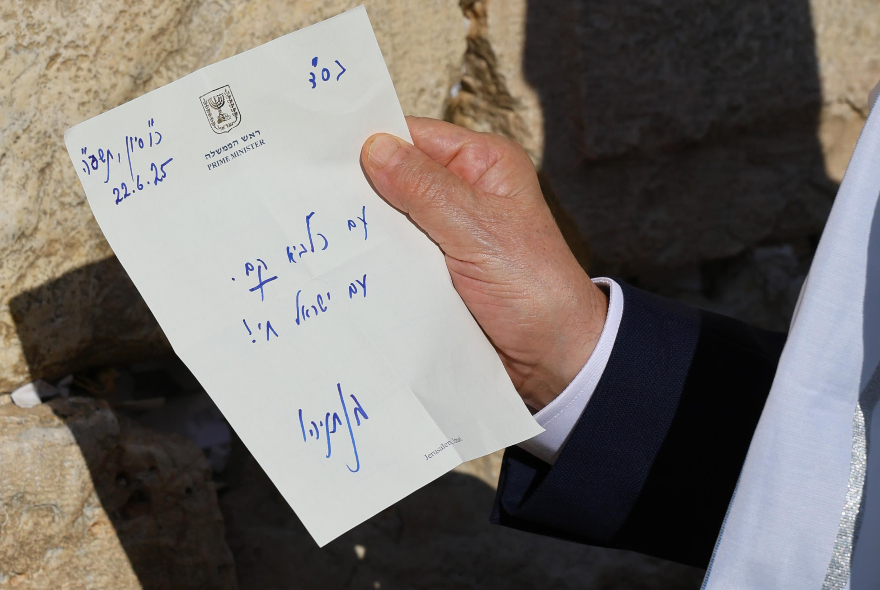 בס"ד
כ"ו סיון, תשפ"ה
22.6.25
ראש הממשלה
PRIME MINISTER
עם כלביא קם.
עם ישראל חי!
Jerusalem,